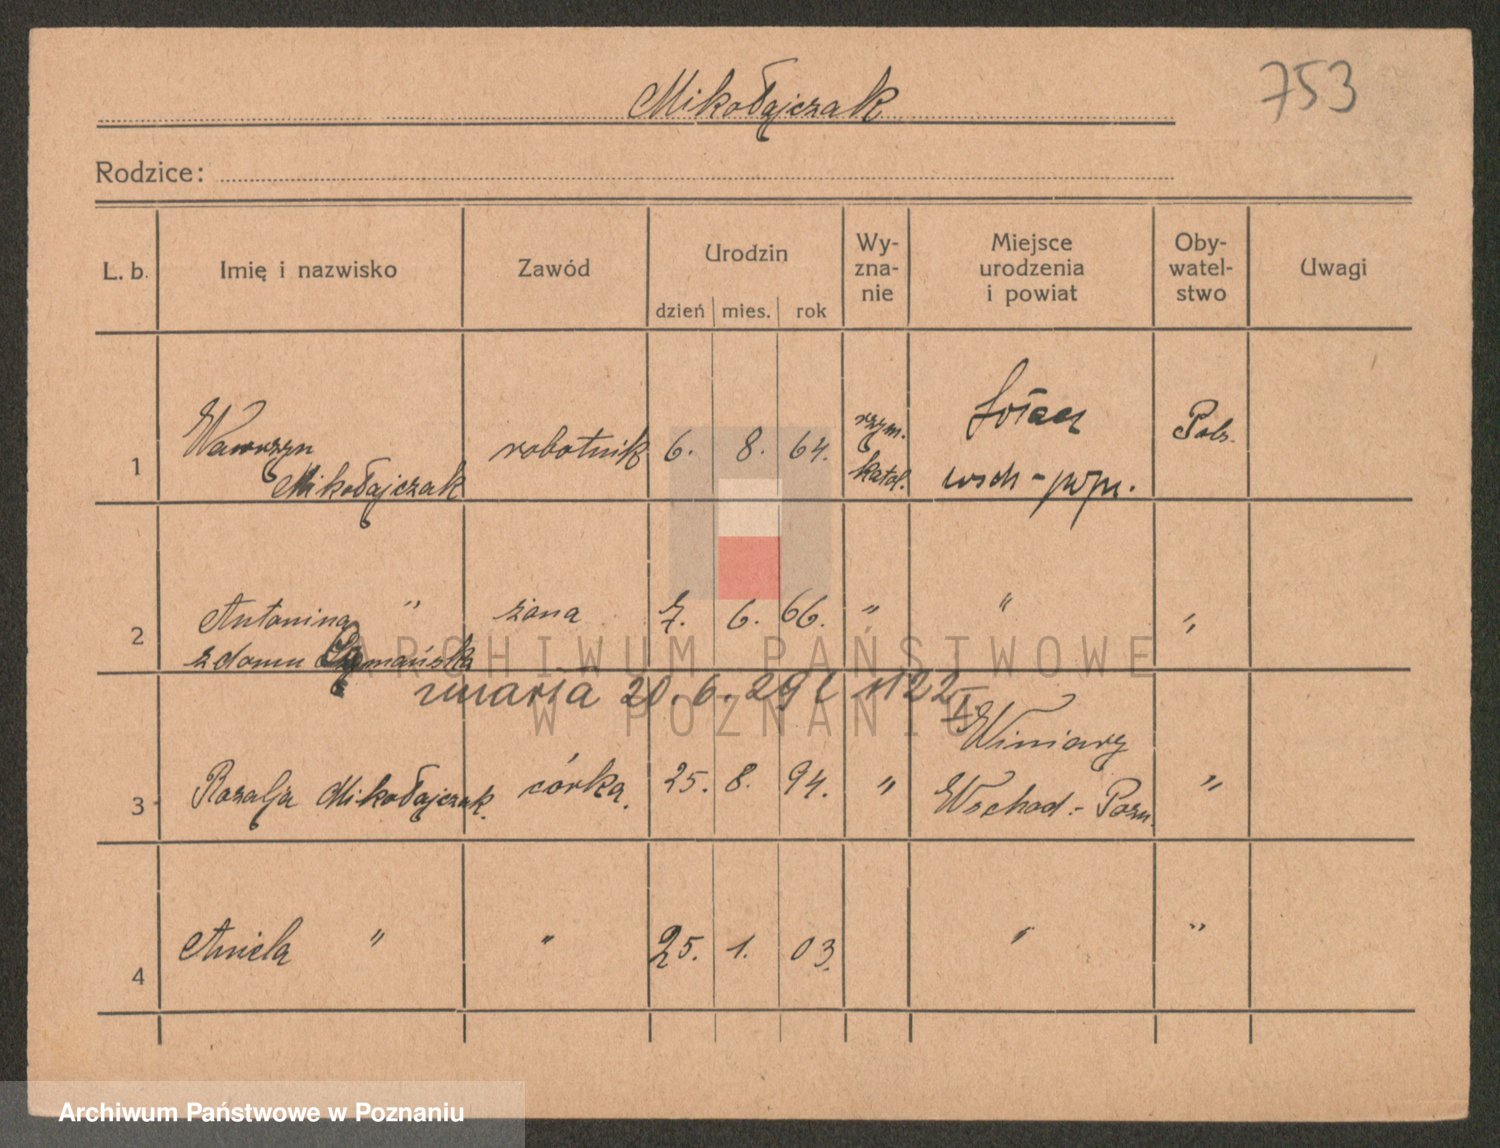 Mikołajczak
753
Rodzice:
L. b. Imię i nazwisko Zawód Urodzin dzień mies. rok Wy-zna-nie Miejsce urodzenia i powiat Oby-watel-stwo Uwagi
1 Wawrzyn Mikołajczak robotnik 6. 8. 64. rzym. katol. Sołacz wsch - pozn. Pols.
2 Antonina " żona 7. 6. 66. " " "
z domu
zmarła 20. 6. 29 1122
3 Rozalja Mikołajczak. córka. 25. 8. 94. " Winiary Wschod - Pozn. "
4 Aniela " " 25. 1. 03. " "
ARCHIWUM PAŃSTWOWE
W POZNANIU
Archiwum Państwowe w Poznaniu